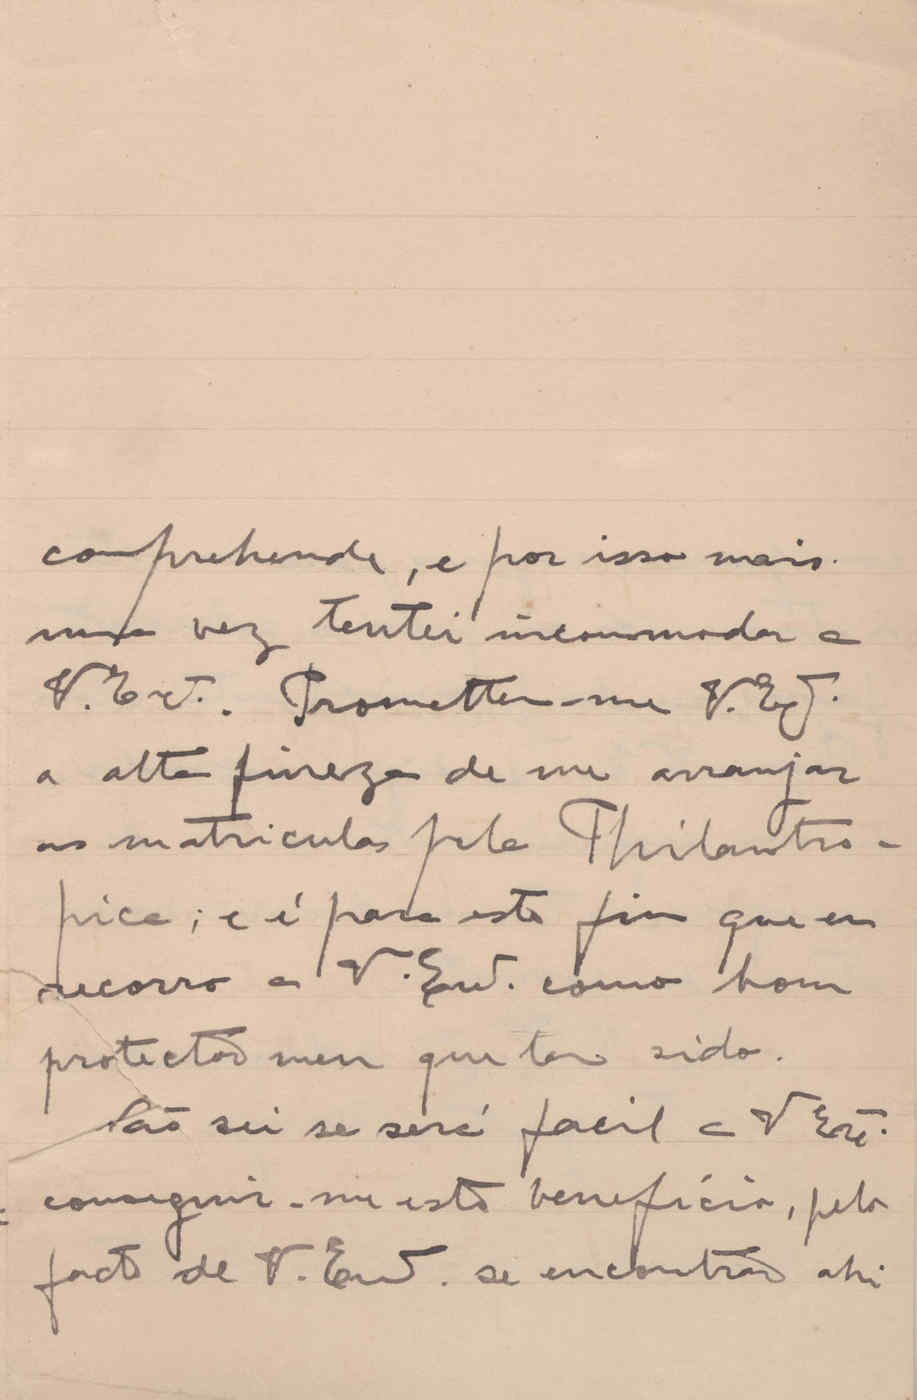 comprehende, e por isso mais
uma vez tentei incommodar a
V. Exª. Prometteu-me V. Exª.
a alta fineza de me arranjar
as matriculas pela Philantro-
pica; e é para este fim que eu
recorro a V. Exª. como bom
protector meu que tem sido.
Não sei se será facil a V Exª.
conseguir-me este beneficio, pelo
facto de V. Exª. se encontrar ahi